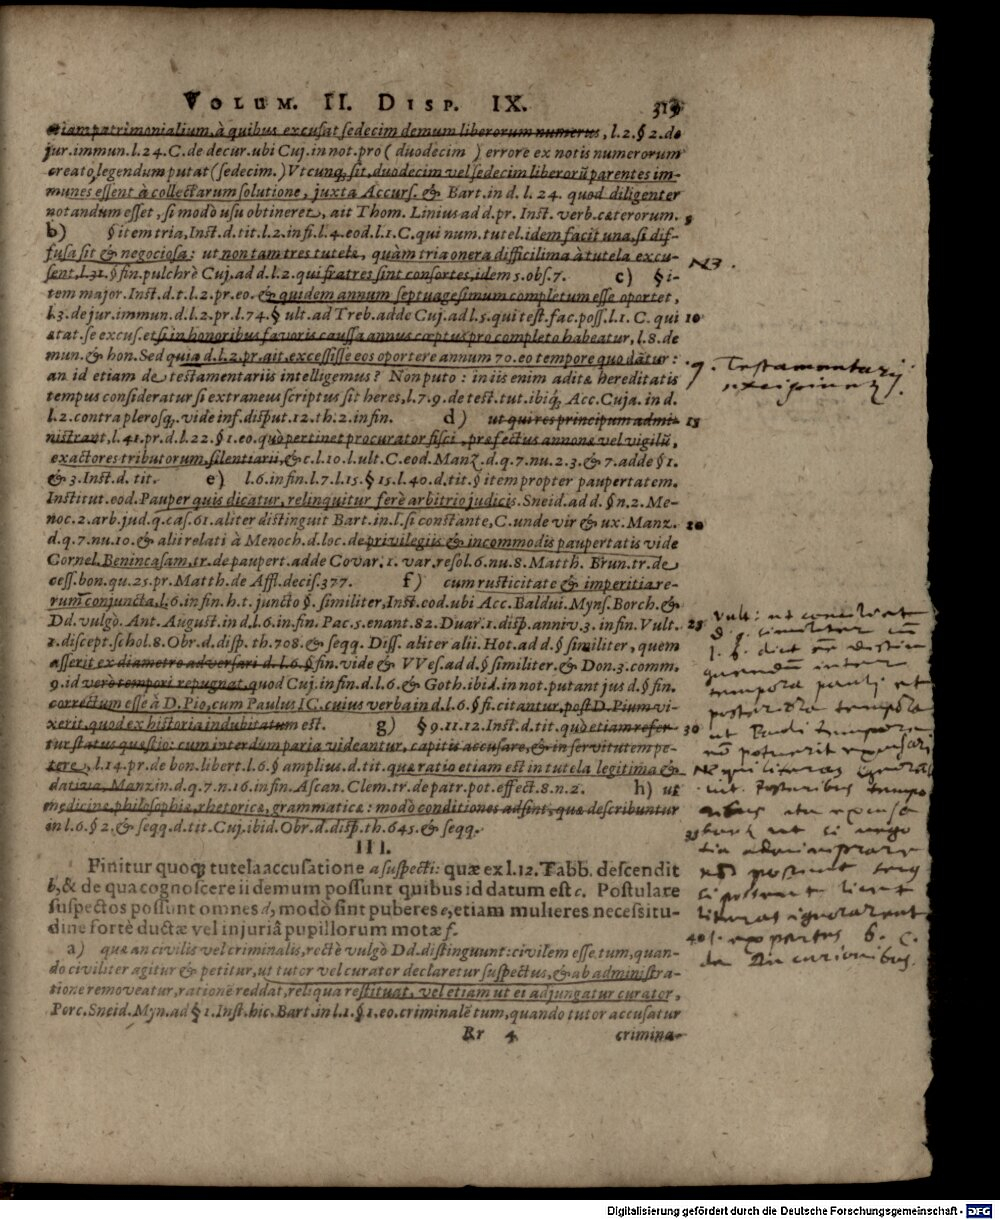 VOLUM. II. DISP. IX. 313
etiam patrimonialium, à quibus excusat sedecim demum liberorum numerus, l.2.§2.de
jur.immun.l.24.C.de decur.ubi Cuj.in not.pro ( duodecim ) errore ex notis numerorum
creato, legendum putat (sedecim.) Utcunq; sit, duodecim vel sedecim liberorũ parentes im-
munes essent à collectarum solutione, juxta Accurs. & Bart.in d. l. 24. quod diligenter
notandum esset, si modò usu obtineret, ait Thom. Linius ad d.pr. Inst. verb.cæterorum. 5
b) §item tria, Inst.d.tit.l.2.in fi.l.4.eod.l.1.C.qui num.tutel.idem facit una, si dif-
fusa sit & negociosa: ut non tam tres tutelæ, quàm tria onera difficilima à tutela excu-
sent, l.31.§fin.pulchrè Cuj.ad d.l.2.qui fratres sint consortes, idem 5.obs.7. c) §i- N3.
tem major.Inst.d.t.l.2.pr.eo.& quidem annum septuagesimum completum esse oportet,
l.3.de jur.immun.d.l.2.pr.l.74.§ ult.ad Treb.adde Cuj.ad l.5.qui test.fac.poss.l.1. C. qui 10
ætat.se excus.etsi in honoribus favoris caussa annus cœptus pro completo habeatur, l.8.de
mun.& hon.Sed quia d.l.2.pr.ait, excessisse eos oportere annum 70.eo tempore quo dãtur:
an id etiam de testamentariis intelligemus? Non puto: in iis enim aditæ hereditatis
9. Testamentarij
tempus consideratur si extraneus scriptus sit heres, l.7.9.de test.tut.ibiq; Acc.Cuja. in d.
l.2.contra plerosq;.vide inf.disput.12.th.2.in fin. d) ut qui res principum admi- 15
nistrant, l.41.pr.d.l.22.§1.eo.quò pertinet procurator fisci, præfectus annonæ vel vigilũ,
exactores tributorum, silentiarii, &c.l.10.l.ult.C.eod.Manz.d.q.7.nu.2.3.& 7.adde §1.
& 3.Inst.d. tit. e) l.6.in fin.l.7.l.15.§15.l.40.d.tit.§item propter paupertatem.
Institut.eod.Pauper quis dicatur, relinquitur ferè arbitrio judicis.Sneid.ad d.§n.2.Me-
noc.2.arb.jud.q.cas.61.aliter distinguit Bart.in.l.si constante, C.unde vir & ux.Manz. 20
d.q.7.nu.10.& alii relati à Menoch.d.loc.de privilegiis & incommodis paupertatis vide
Cornel.Benincasam, tr.de paupert.adde Covar.1. var.resol.6.nu.8.Matth. Brun.tr.de
cess.bon.qu.25.pr.Matth.de Affl.decis.377. f) cum rusticitate & imperitia re-
rum conjuncta, l.6.in fin.h.t. juncto §. similiter, Inst.eod.ubi Acc.Baldui.Myns.Borch.&
Dd.vulgò. Ant. August.in d.l.6.in fin.Pac.5.enant.82.Duar.1.disp.anniv.3.in fin.Vult. 25
1.discept.schol.8.Obr.d.disp.th.708.& seqq. Diss. aliter alii. Hot.ad d.§similiter, quem
asserit ex diametro adversari d.l.6.§fin.vide & VVes.ad d.§similiter.& Don.3.comm.
9.id verò tempori repugnat, quod Cuj.in fin.d.l.6.& Goth.ibid.in not.putant jus d.§fin.
correctum esse à D.Pio, cum Paulus IC.cujus verba in d.l.6.§fi.citantur, post D.Pium vi-
xerit, quod ex historia indubitatum est. g) §9.11.12.Inst.d.tit.quò etiam refer- 30
tur status quæstio: cum interdum paria videantur, capitis accusare, & in servitutem pe-
tere, l.14.pr.de bon.libert.l.6.§amplius.d.tit.quæ ratio etiam est in tutela legitima &
dativa, Manz.in d.q.7.n.16.in fin.Ascan.Clem.tr.de patr.pot.effect.8.n.2. h) ut
medicinæ, philosophiæ, rhetoricæ, grammaticæ: modò conditiones adsint, quæ describuntur
in l.6.§2.& seqq.d.tit.Cuj.ibid.Obr.d.disp.th.645.& seqq. 35
III.
Finitur quoq; tutela accusatione a suspecti: quæ ex l.12.Tabb. descendit
b, & de qua cognoscere ii demum possunt quibus id datum est c. Postulare
suspectos possunt omnes d, modò sint puberes e, etiam mulieres necessitu-
dine fortè ductæ vel injuriâ pupillorum motæ f. 40
a) quæ an civilis vel criminalis, rectè vulgò Dd.distinguunt: civilem esse tum, quan-
do civiliter agitur & petitur, ut tutor vel curator declaretur suspectus, & ab administra-
tione removeatur, rationẽ reddat, reliqua restituat, vel etiam ut ei adjungatur curator,
Porc.Sneid.Myn.ad §1.Inst.hic.Bart.in l.1.§1.eo.criminalẽ tum, quando tutor accusatur
Rr 4 crimina-
Vult: ut
tempora pauli et
posteriora tempora
ut Pauli tempore
nõ potuerit excusari
literas
posterioribus tempo
ribus
literas ignorarent
l. expertes 6. C.
de Decurionibus.
Digitalisierung gefördert durch die Deutsche Forschungsgemeinschaft - DFG